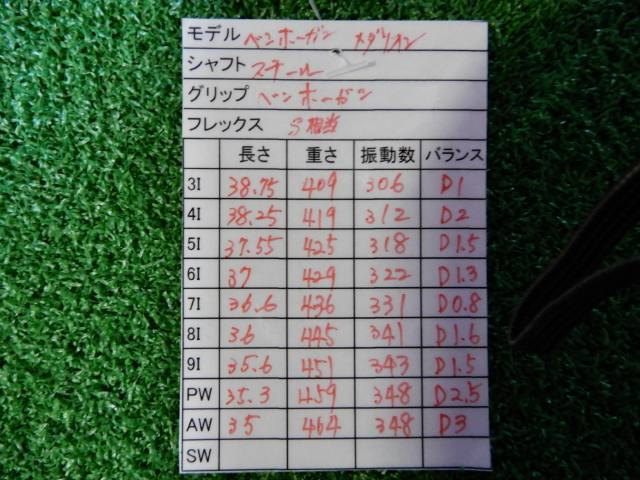 モデル ベンホーガン メダリオン
シャフト スチール
グリップ ベンホーガン
フレックス S相当
長さ 重さ 振動数 バランス
3I 38.75 409 306 D1
4I 38.25 419 312 D2
5I 37.55 425 318 D1.5
6I 37 429 322 D1.3
7I 36.6 436 331 D0.8
8I 36 445 341 D1.6
9I 35.6 451 343 D1.5
PW 35.3 459 348 D2.5
AW 35 464 348 D3
SW